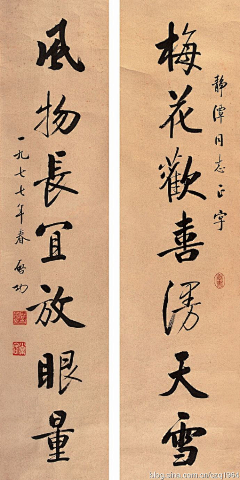 静潭同志正字
梅花歡喜漫天雪
風物長宜放眼量
一九七七年春 啓功